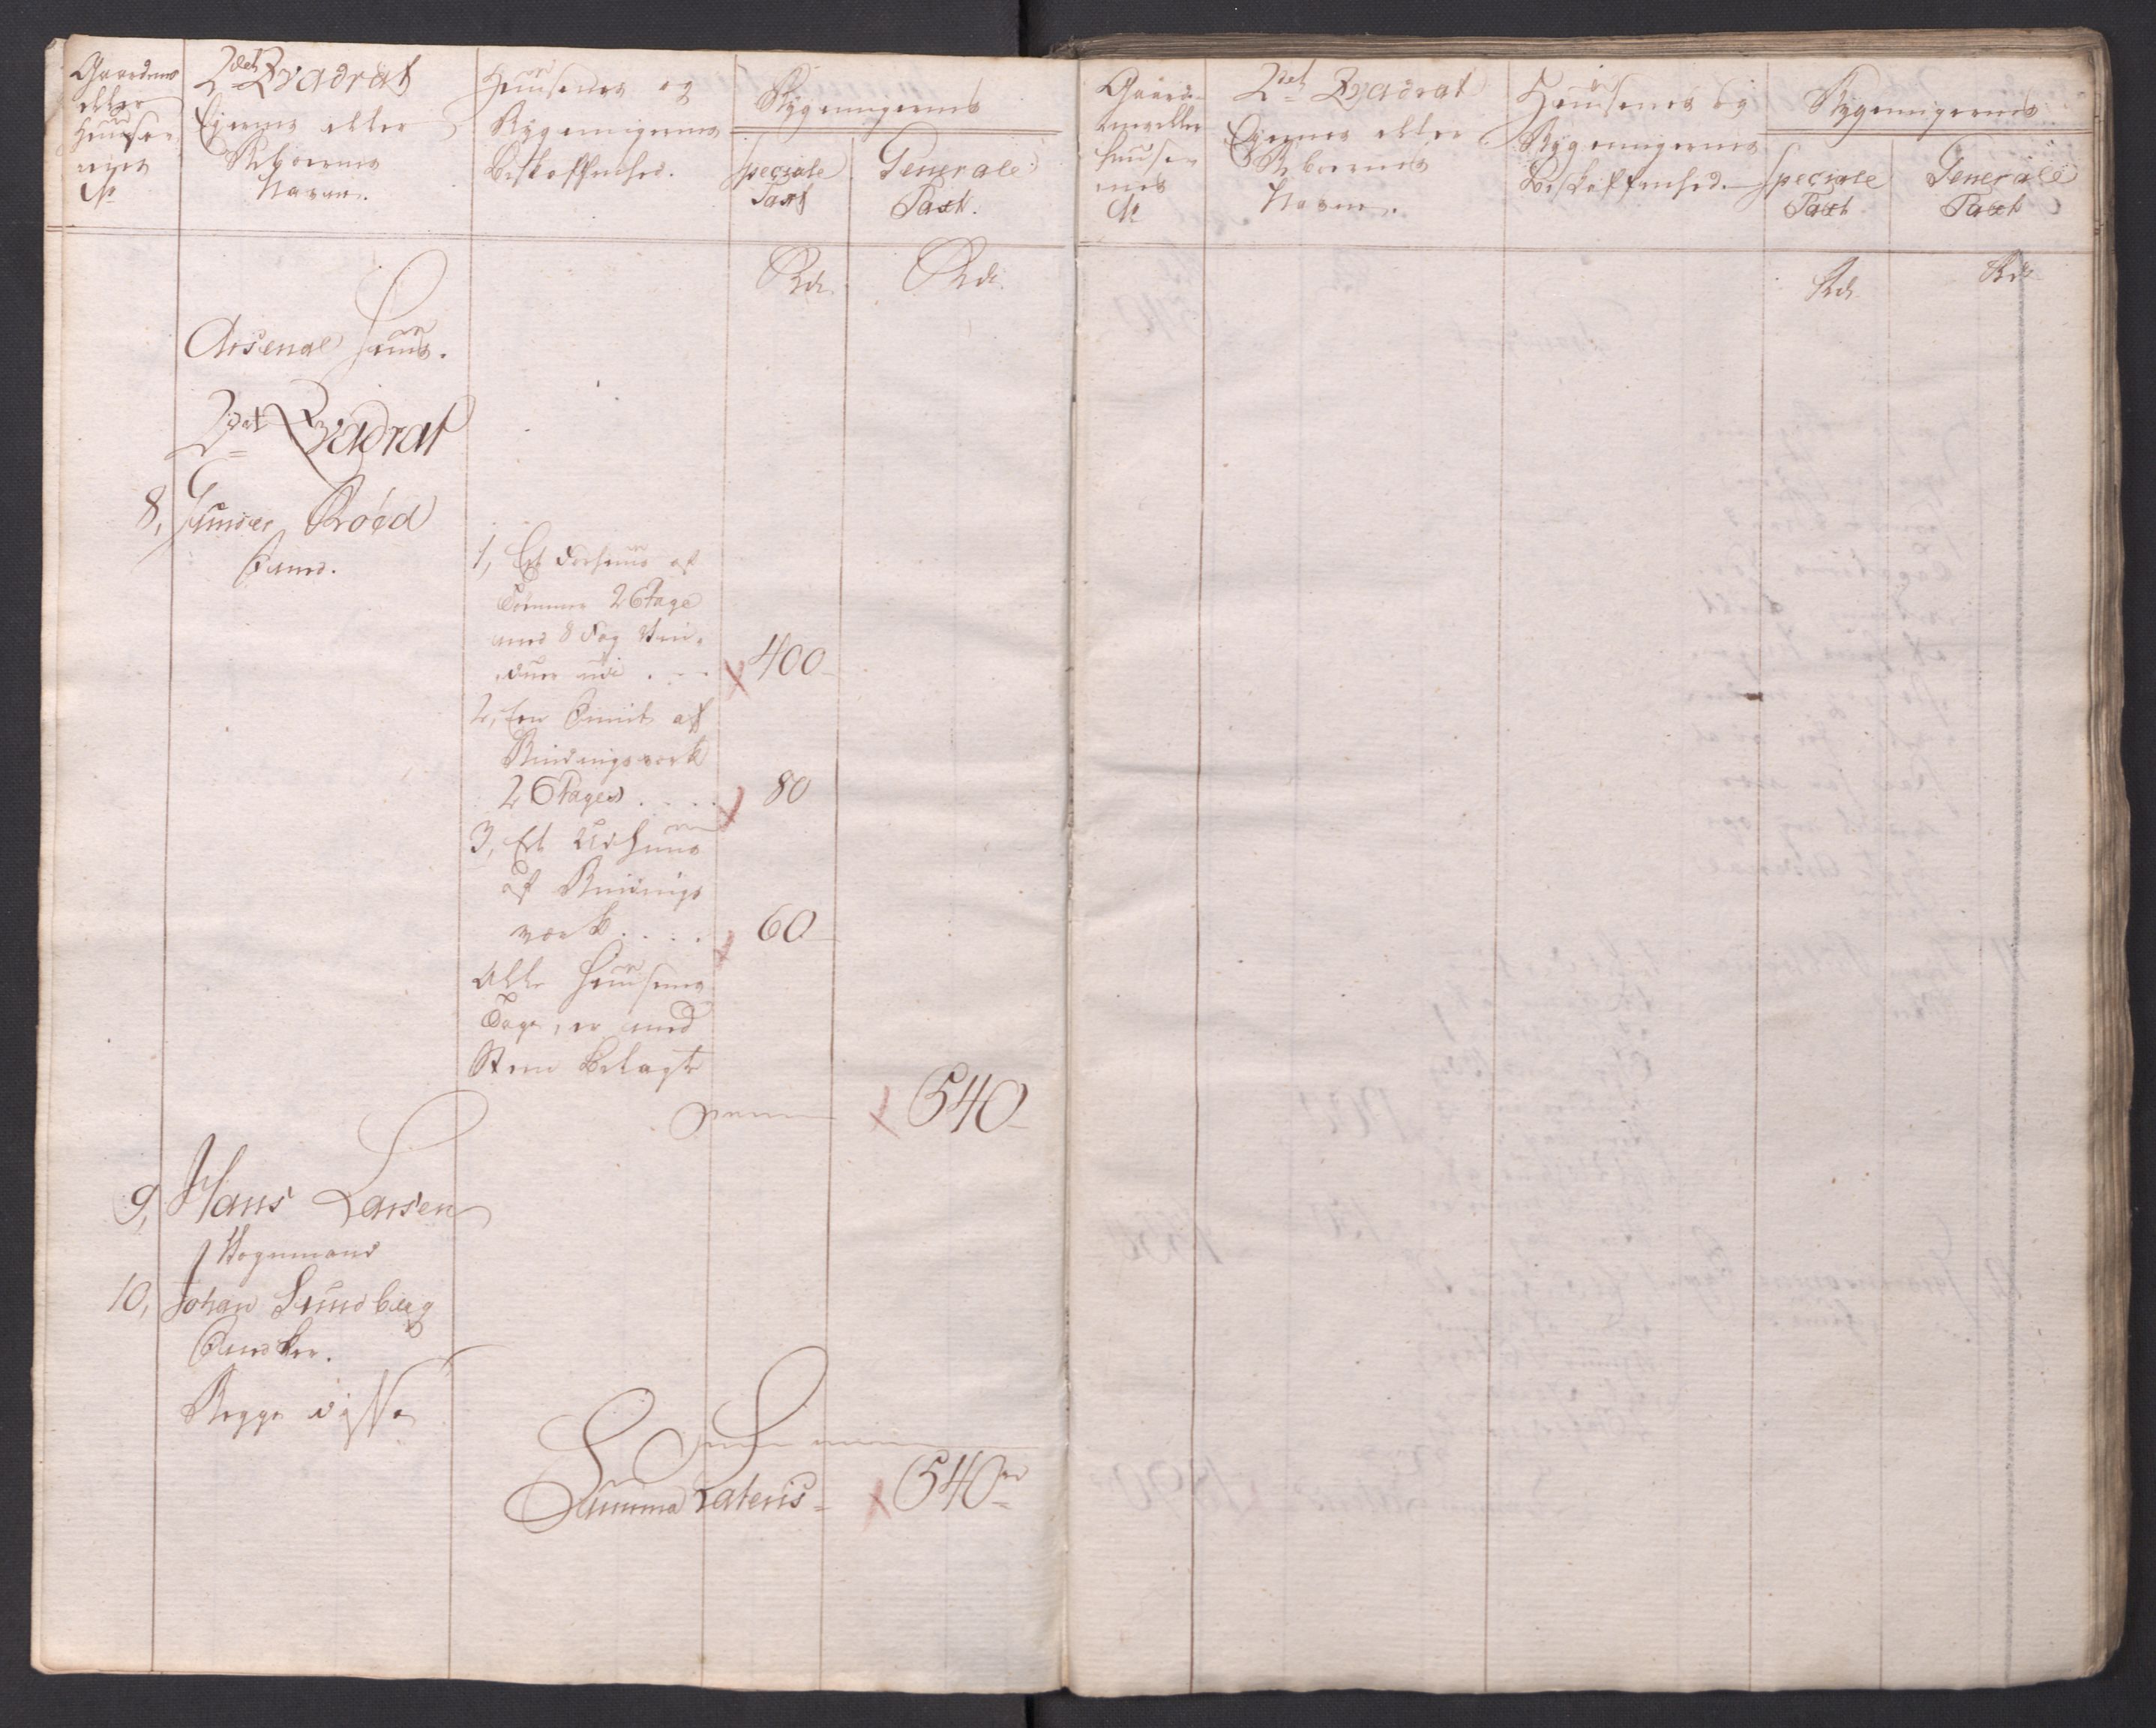 Gaardenes
eller
Huuser-
nes
No
2det Qvadrat
Ejernes eller
Beboernes
Navne.
Huusenes og
Bygningernes
Beskaffenhed.
Bygningernes
Speciale
Taxt
Generale
Taxt.
Rdr.
Rdr.
Arsenal Huus.
2det Qvadrat
8, Gunder Röed
1, Et Vaahuus af
Tömmer 2 Etage
med 8 Fag Vin-
duer udi . . .
400
2, En Qvint af
Bindingsverk
2 Etager . . . .
80
3, Et Udhuus
af Bindings
værk . . . .
60
Alle Huusenes
Tage, er med
Steen belagt
540
9, Hans Larsen
Vognmand
10, Johan Sundberg
Begge øde
Summa Lateris
540 rd
Gaarde-
nes eller
Huuser-
nes
No
2det Qvadrat
Ejernes eller
Beboernes
Navne.
Huusenes og
Bygningernes
Beskaffenhed.
Bygningernes
Speciale
Taxt
Generale
Taxt
Rdr.
Rdr.